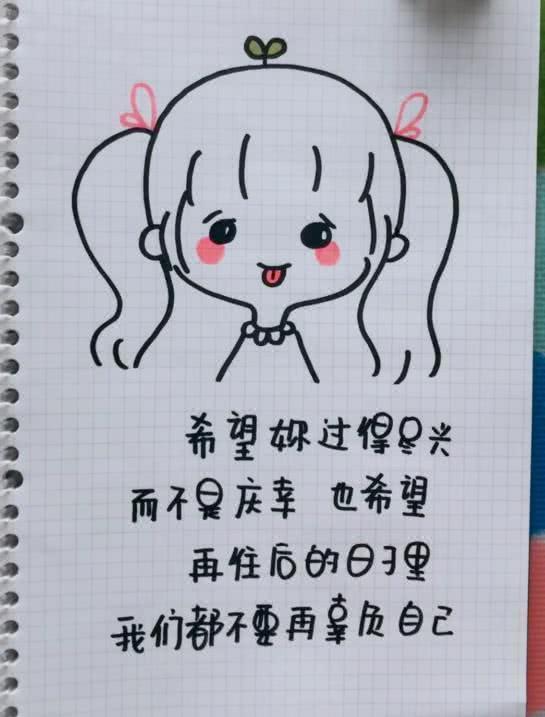 希望妳过得尽兴
而不是庆幸 也希望
再住后的日子里
我们都不要再辜负自己